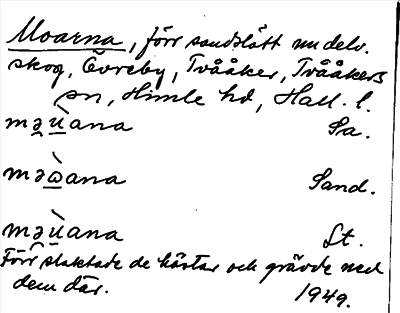 Moarna, förr sandslätt nu delv.
skog, Övreby, Tvååker, Tvååkers
sn, Himle hd, Hall. l.
mə̯ṳ̀ana Sa.
məὼ̲ana Sand.
mə̯ṳ̀ana St.
Förr slaktade de hästar och grävde ned
dem där. 1949.